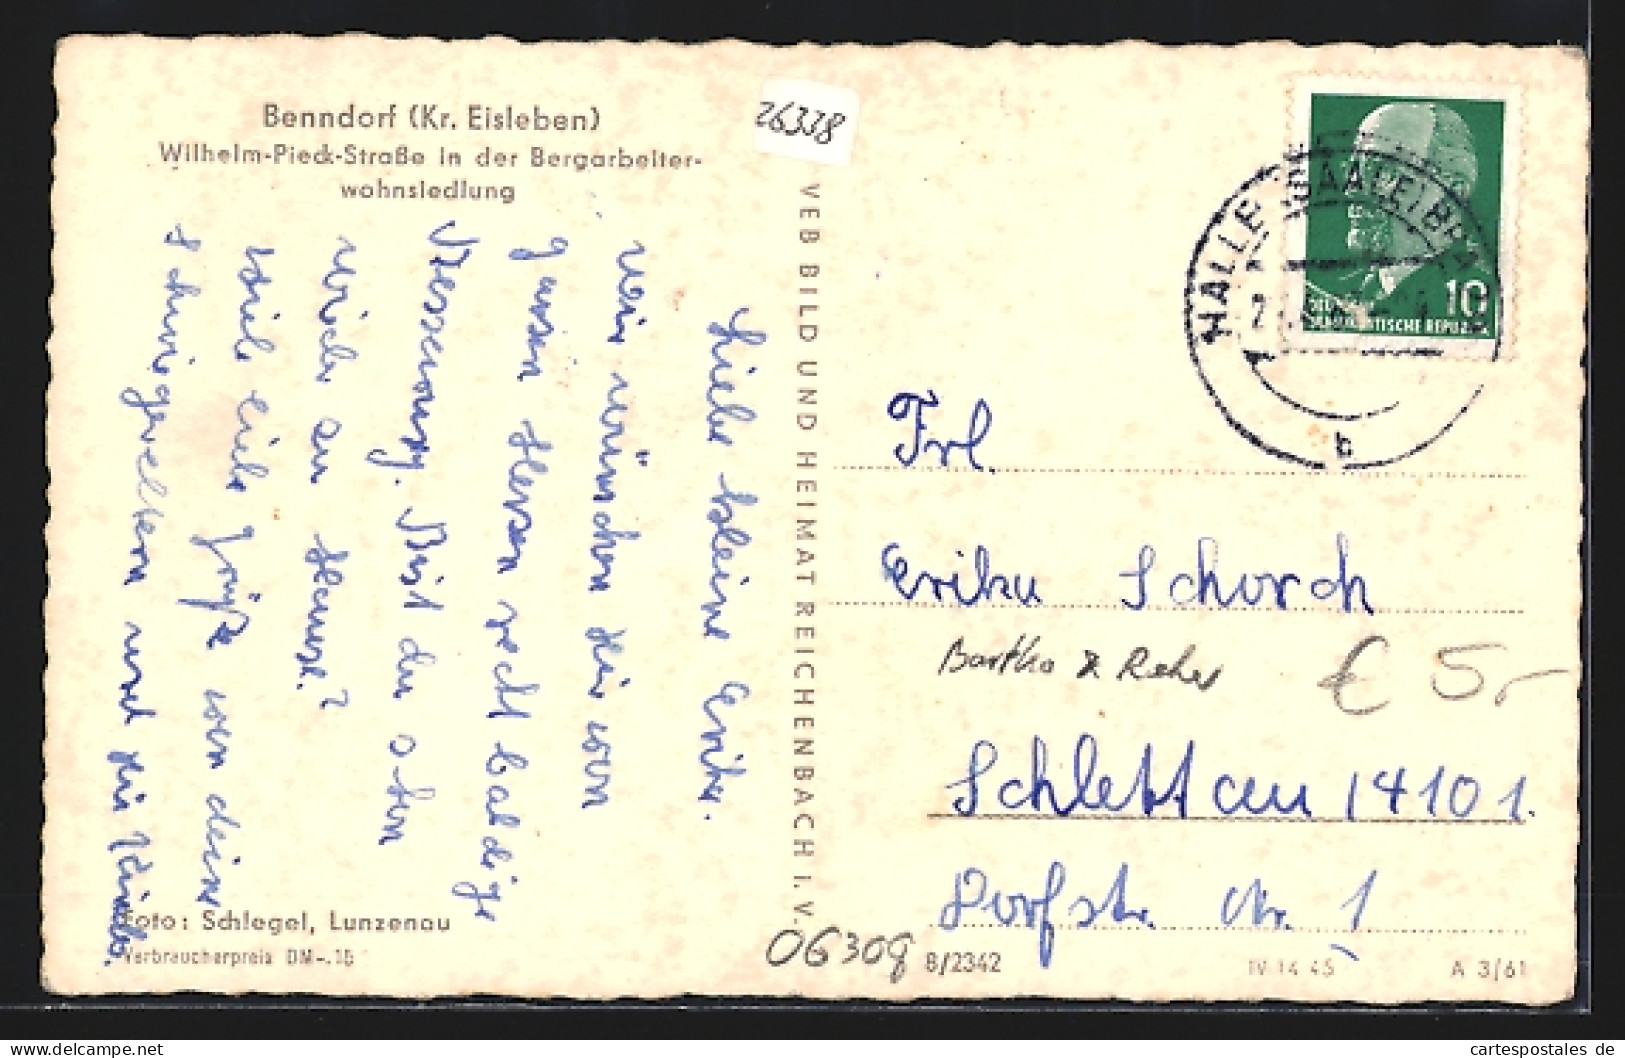 Benndorf (Kr. Eisleben)
Wilhelm-Pieck-Straße in der Bergarbeiter-
wohnsiedlung
26338
Liebe kleine Erika.
wir wünschen dir von
ganzen Herzen recht baldige
Besserung. Bist du schon
wieder zu Hause?
Viele liebe Grüße von deine
Schwiegereltern und die Kinder.
Foto: Schlegel, Lunzenau
Verbraucherpreis DM -.15
VEB BILD UND HEIMAT REICHENBACH I. V.
HALLE (SAALE) BPA
b
10
DEMOKRATISCHE REPUBLIK
Frl.
Erika Schorch
Bartho & Reher
€ 5,-
Schlettau 14101.
Dorfstr. Nr. 1
06309
8/2342
IV 14 45
A 3/61
www.cartespostales.eu
cartespostales de